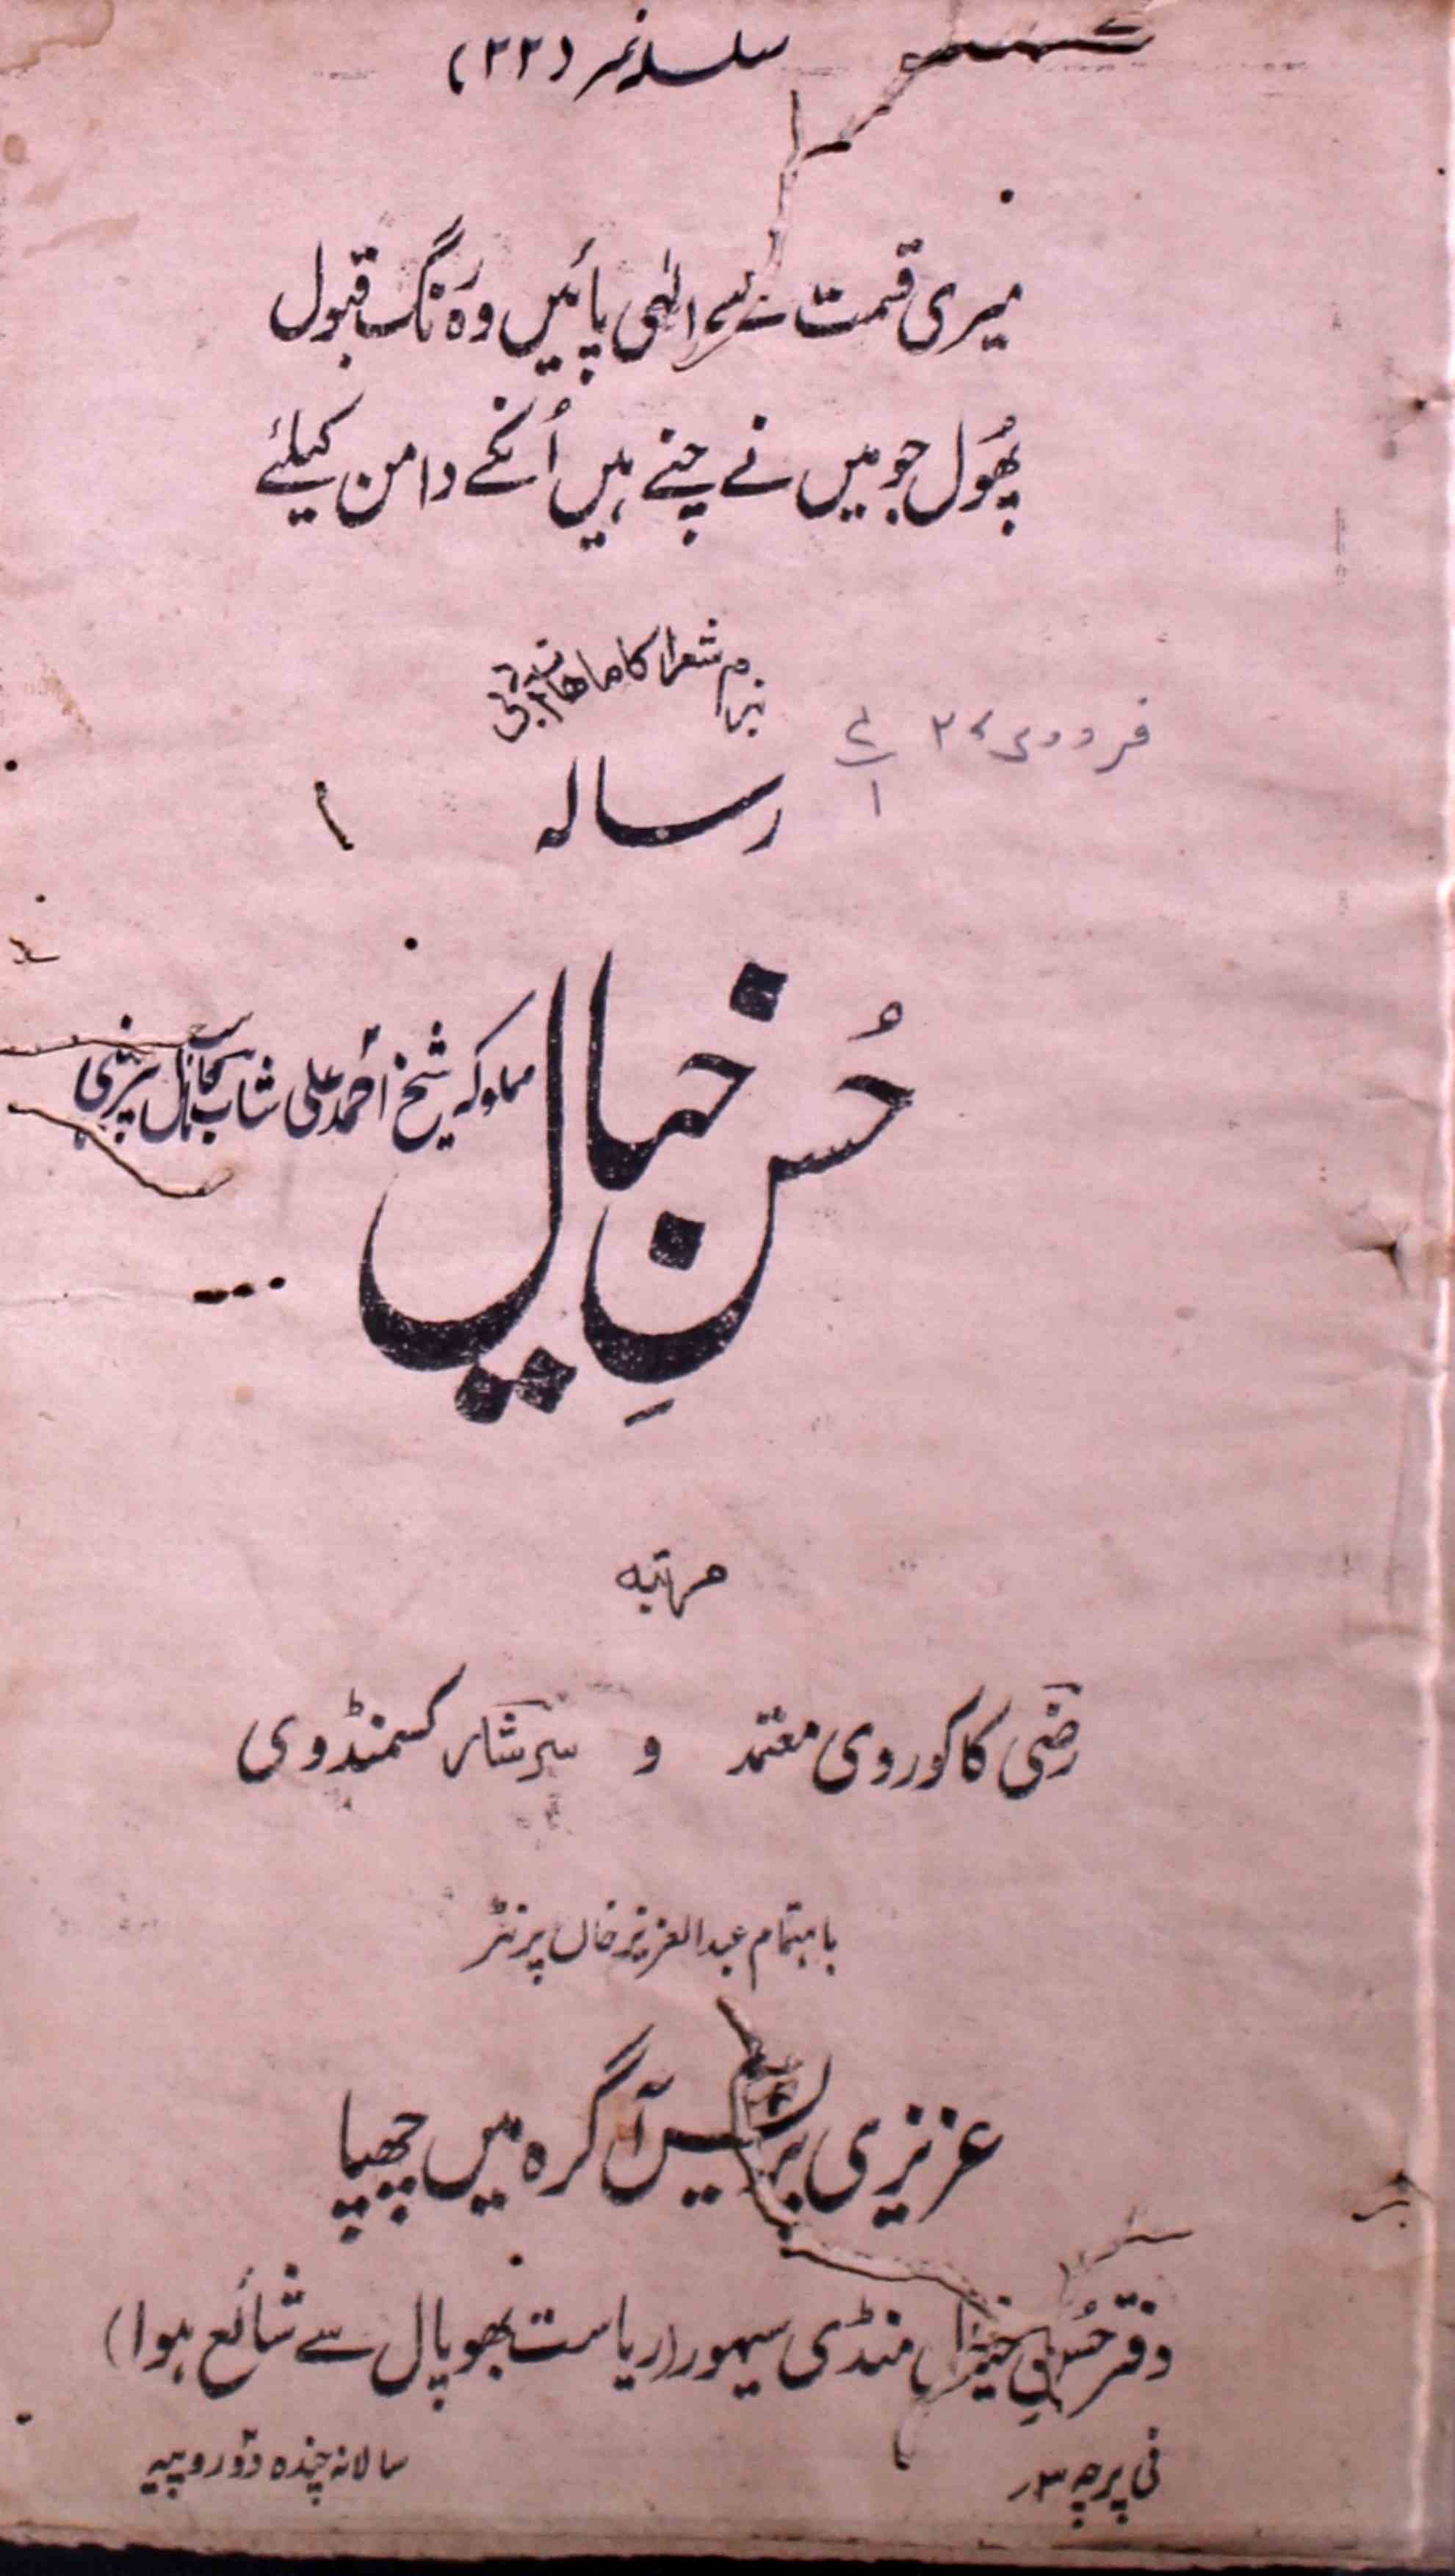 سلسلہ نمبر (۲۲)
میری قسمت سے الٰہی پائیں وہ رنگ قبول
پھُول جو میں نے چنے ہیں اُنکے دامن کیلئے
بزم شعرا کا ماهانہ ادبی
فروری ۲۶
رسالہ
حُسنِ خیال
مملوکہ شیخ احمد علی شاب
مرتبہ
رضی کاکوروی معتمد و سرشار کسمنڈوی
باہتمام عبدالعزیز خاں پرنٹر
عزیزی پریس آگرہ میں چھپا
دفتر حُسنِ خیال منڈی سیہور (ریاست بھوپال سے شائع ہوا)
فی پرچہ ۳ر
سالانہ چندہ دو روپیہ